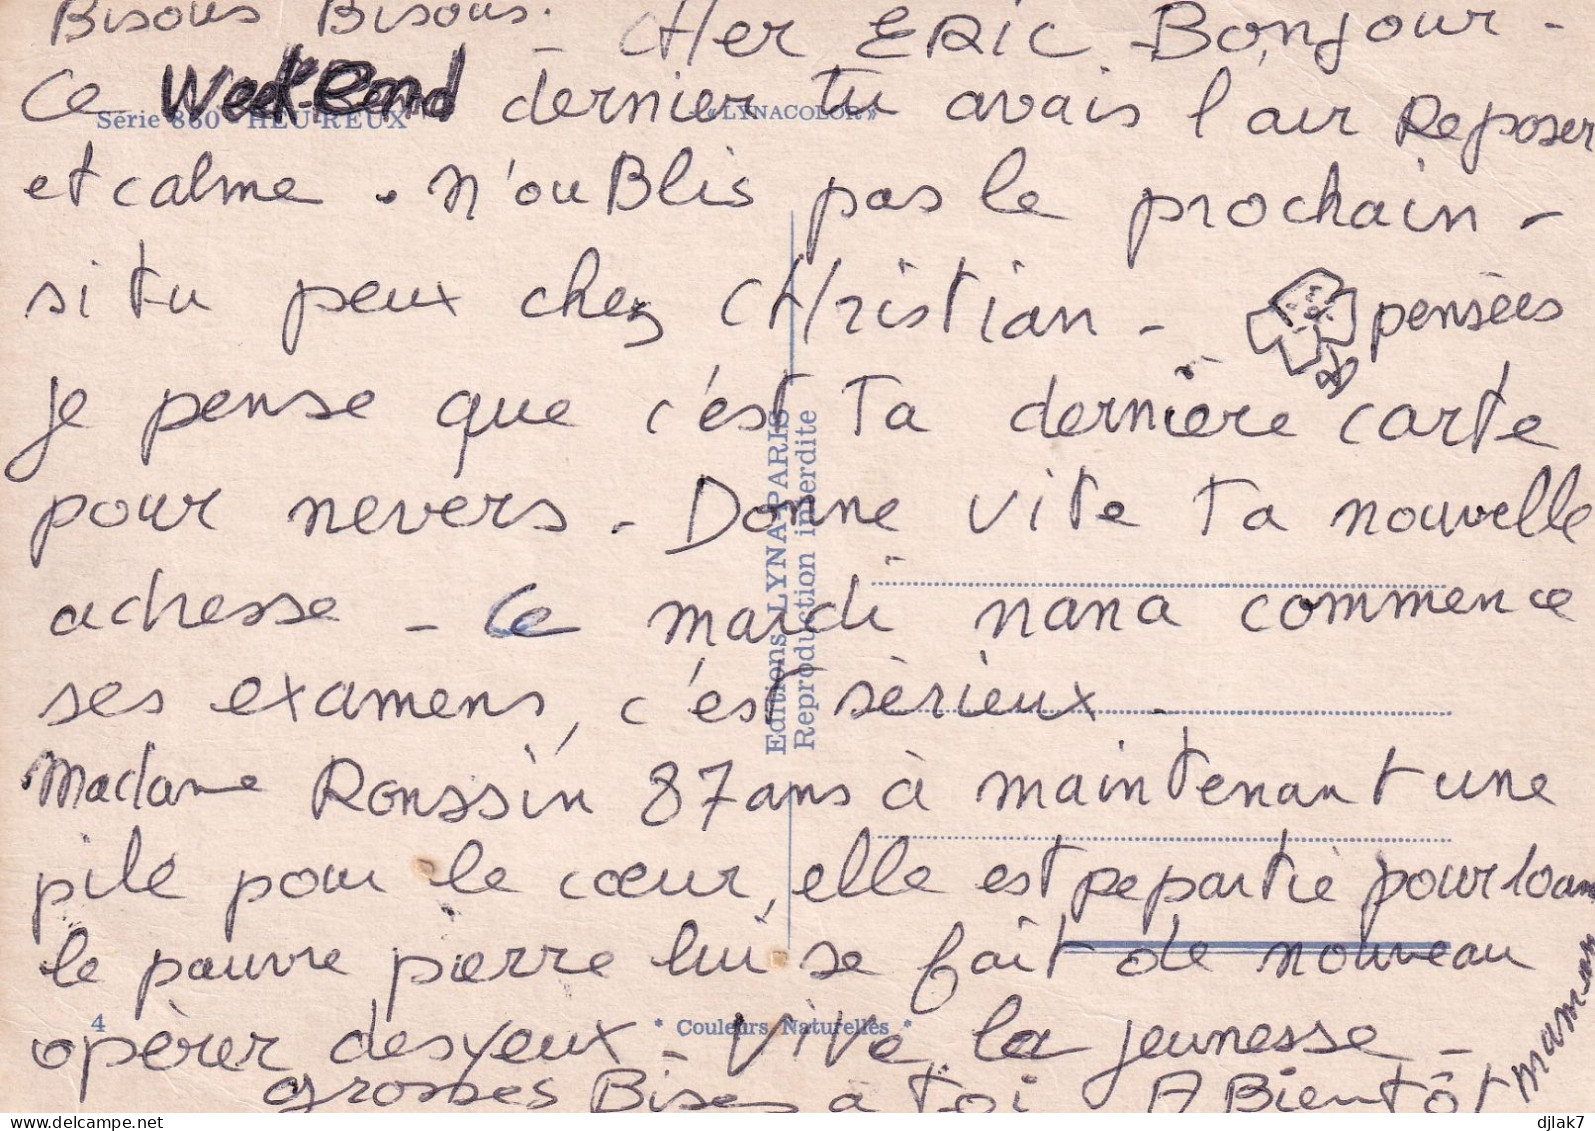 Bisous Bisous.
- CHer ERIC - Bonjour -
Ce Week-End dernier tu avais l'air Reposer
Série 860 "HEUREUX" «LYNACOLOR»
et calme. N'ouBlis pas le prochain -
si tu peux chez CHristian - pensées
je pense que c'est Ta dernière carte
pour nevers. Donne vite Ta nouvelle
adresse - Ce mardi nana commence
ses examens, c'est sèrieux -
Madame Ronssin 87 ans à maintenant une
pile pour le cœur, elle est Repartie pour 10 ans
le pauvre pierre lui se fait de nouveau
opèrer des yeux - ViVe la jeunesse -
grosses Bises à toi A Bientôt
maman
Editions LYNA-PARIS
Reproduction interdite
4 * Couleurs Naturelles *
djlak7